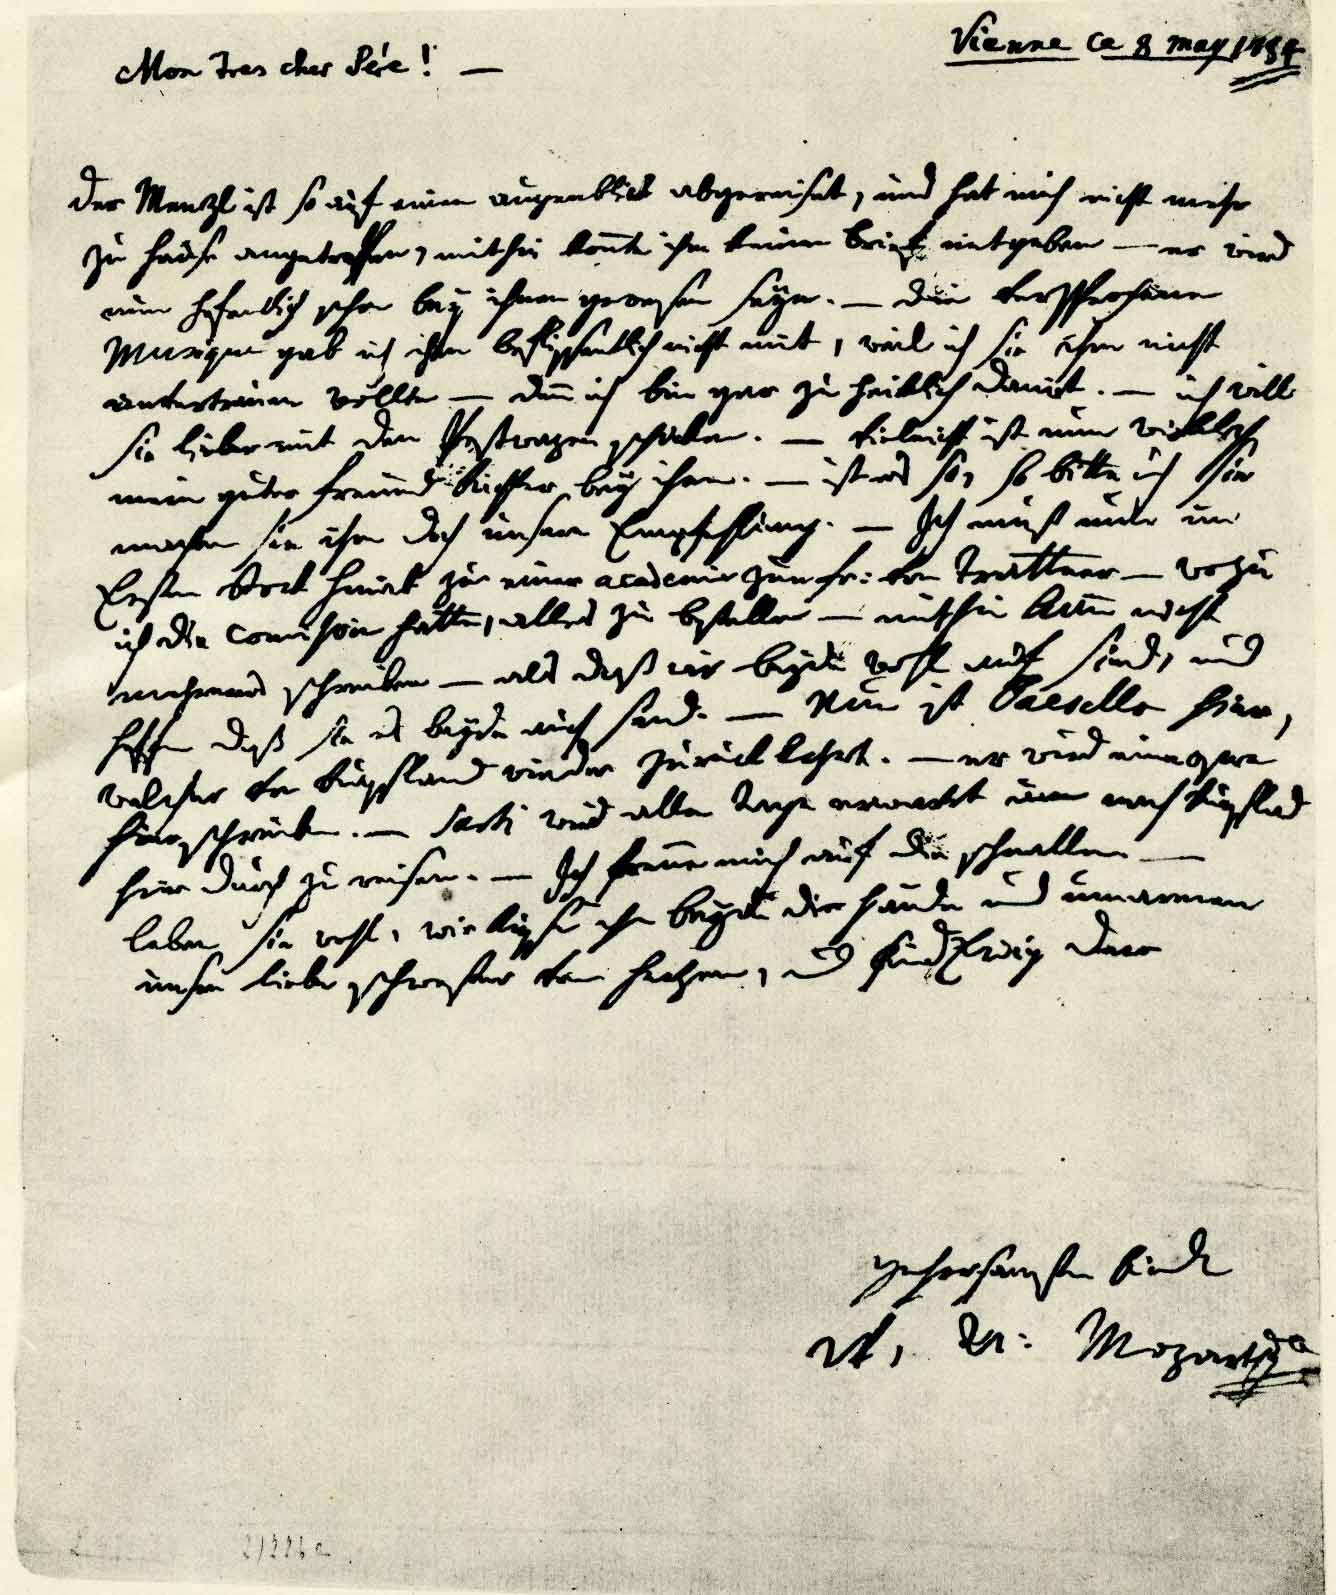 Vienne ce 8 may 1784
Mon trés cher Pére! —
der Menzl ist so auf einen augenblick abgereiset, und hat mich nicht mehr
zu hause angetroffen, mithin konnte ihm keinen brief mitgeben — er wird
nun hofentlich schon bey ihnen gewesen seyn. — die versprochene
Musique gab ich ihm beflissentlich nicht mit, weil ich sie ihm nicht
anvertrauen wollte — denn ich bin gar zu heiklich damit. — ich will
sie lieber mit dem Postwagen schicken. — vieleicht ist nun wirklich
mein guter freund Richter bey ihnen. — ist es so, so bitte ich Sie
machen sie ihm doch unsere Empfehlung. — Ich muß nun im
Ersten Stock hinab zu einer academie zur fr: von Trattner — wozu
ich die Comission hatte, alles zu bestellen — mithin kan nicht
mehreres schreiben — als daß wir beyde wohl auf sind, und
hoffen daß sie es beyde auch sind. — Nun ist Paesello hier,
welcher von Rußland wieder zurück kehrt. — er wird eine opera
hier schreiben. — Sarti wird alle Tage erwartet um nach Rußland
hier durch zu reisen. — Ich freue mich auf die schnallen —
leben sie wohl, wir küssen ihnen beyde die hände und umarmen
unsere liebe schwester von herzen, und sind Ewig dero
gehorsamste kinder
W. A: Mozart